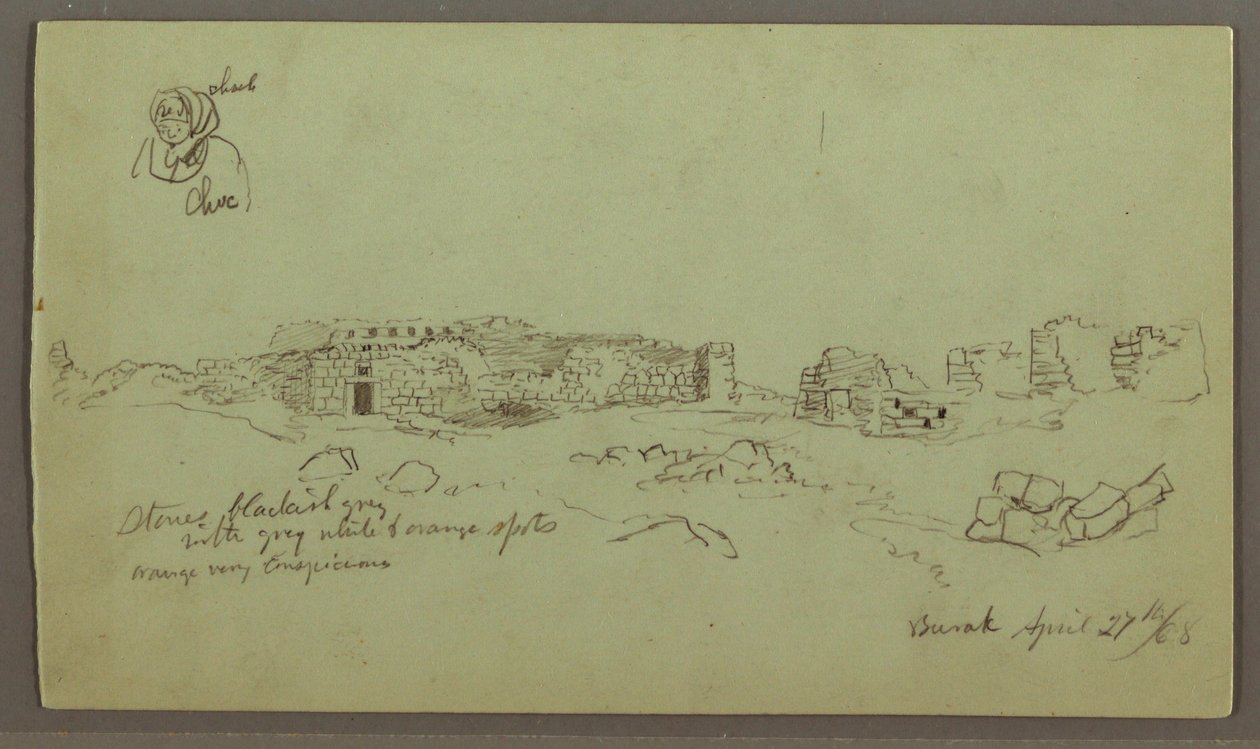 black
red
Choc
Stones blackish grey
with grey white & orange spots
orange very conspicuous
Burak April 27th/68